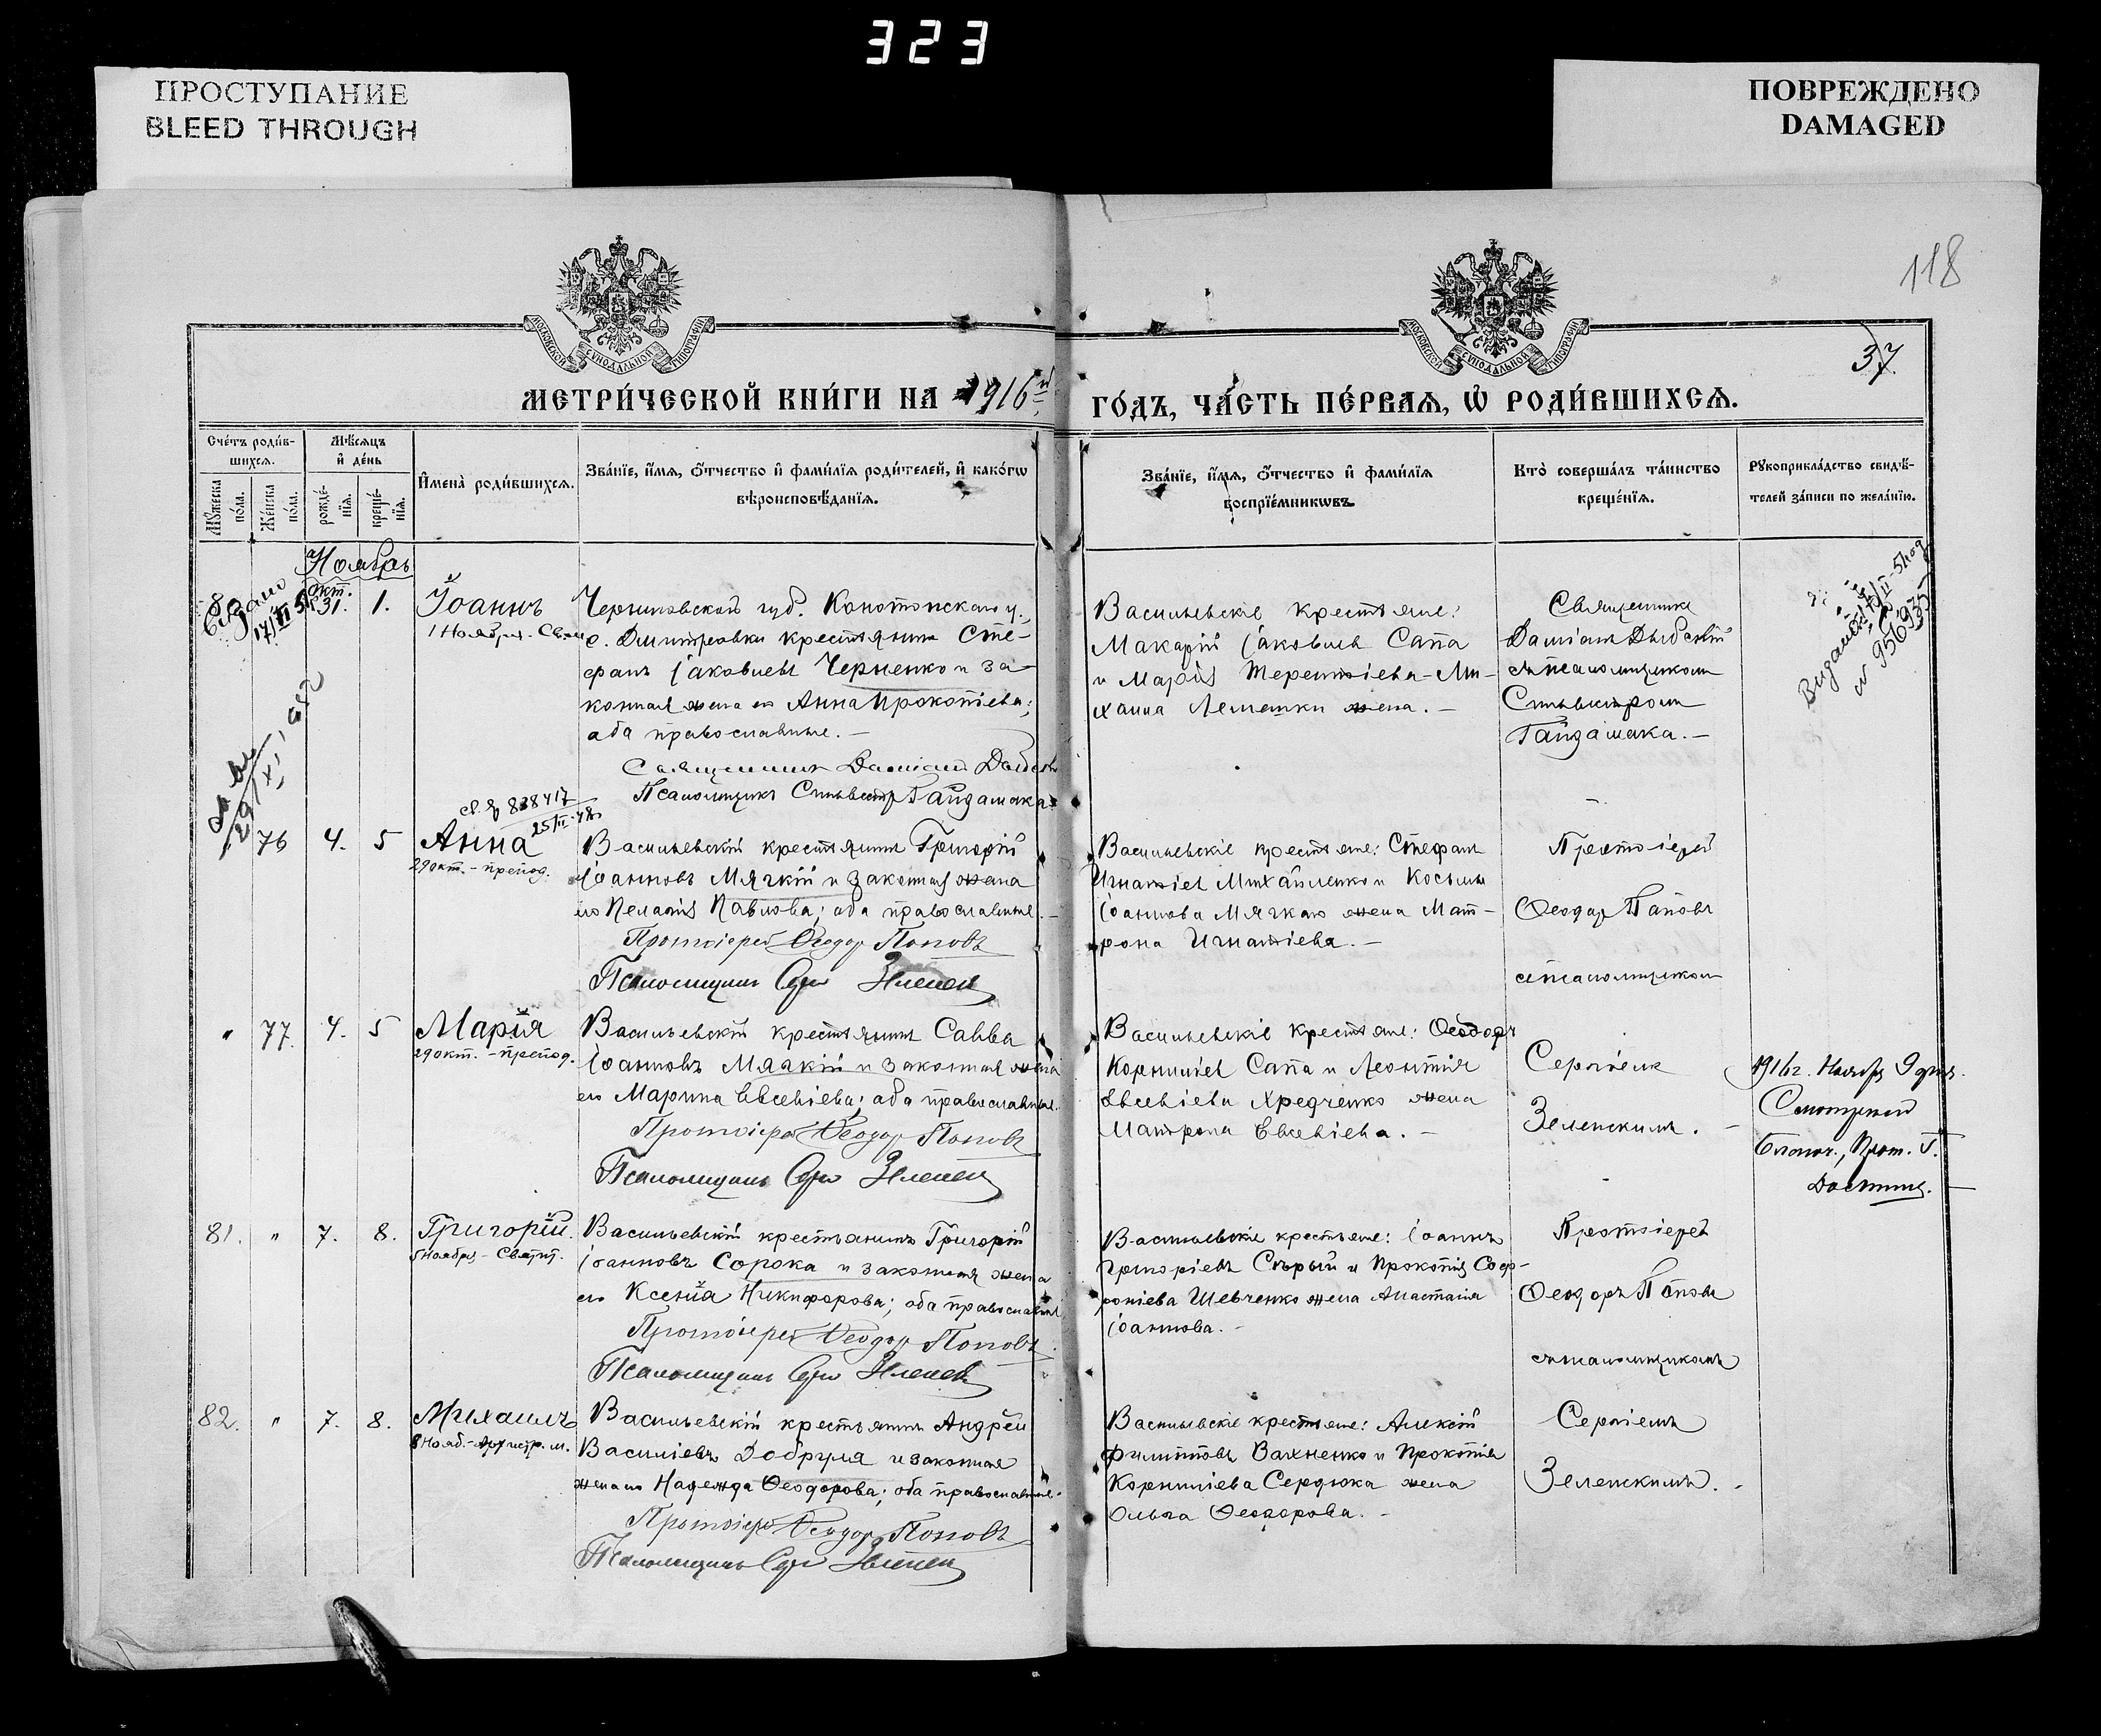 323
ПРОСТУПАНИЕ
BLEED THROUGH
ПОВРЕЖДЕНО
DAMAGED
118
37
МОСКОВСКОЙ СѴНОДАЛЬНОЙ ТИПОГРАФІИ
МОСКОВСКОЙ СѴНОДАЛЬНОЙ ТИПОГРАФІИ
МЕТРИ́ЧЕСКОЙ КНИ́ГИ НА 1916й
ГО́ДЪ, ЧА́СТЬ ПЕ́РВАѦ, Ѡ РОДИ́ВШИХСѦ.
Сче́тъ роди́в-
шихсѧ.
Мꙋ́жеска по́ла.
Же́нска по́ла.
Мѣ́сѧцъ
и҆ де́нь
рожде́-нїѧ.
креще́-нїѧ.
И҆мена̀ роди́вшихсѧ.
Зва́нїе, и҆́мѧ, ѻ҆́тчество и҆ фами́лїѧ роди́телей, и҆ како́гѡ
вѣроисповѣ́данїѧ.
Зва́нїе, и҆́мѧ, ѻ҆́тчество и҆ фами́лїѧ
воспрїе́мникѡвъ.
Кто̀ соверша́лъ та́инство
креще́нїѧ.
Рꙋкоприкла́дство свидѣ́-
телей за́писи по жела́нїю.
Ноябрь
окт.
31. 1.
Іоаннъ
1 Ноября
Черниговской губ. Конотопскаго у.,
с. Дмитровки крестьянинъ Сте-
фанъ Іаковлевъ Черненко и за-
конная жена его Анна Прокопіева;
оба православные. —
Священникъ Даміанъ
Псаломщикъ Сильвестръ Гайдамака
Васильевскіе крестьяне:
Макарій Іаковлевъ Сапа
и Марія Терентіева - Ми-
хаила Лемешки жена. —
Священникъ
Даміанъ
съ псаломщикомъ
Сильвестромъ
Гайдамака. —
№ 956935
838417
25/II-48
76 4. 5 Анна
29 окт. - препод.
Васильевскій крестьянинъ Григорій
Іоанновъ Мягкій и законная жена
его Пелагія Павлова; оба православные. —
Протоіерей Ѳеодоръ Поповъ
Псаломщикъ
Васильевскіе крестьяне: Стефанъ
Игнатіевъ Михайленко и Косьмы
Іоаннова Мягкаго жена Мат-
рона Игнатіева. —
Протоіерей
Ѳеодоръ Поповъ
съ псаломщикомъ
" 77. 4. 5 Марія
29 окт. - препод.
Васильевскій крестьянинъ Савва
Іоанновъ Мягкій и законная жена
его Марина Евсевіева; оба православные.
Протоіерей Ѳеодоръ Поповъ
Псаломщикъ
Васильевскіе крестьяне: Ѳеодоръ
Корниліевъ Сапа и Леонтія
Евсевіева Хредченко жена
Матрона Евсевіева. —
Сергіемъ
Зеленскимъ. —
1916г. Ноября 9 дня.
Смотрѣлъ
Благоч., Прот. Г.
81. " 7. 8. Григорій.
5 Ноября - Святит.
Васильевскій крестьянинъ Григорій
Іоанновъ Сорока и законная жена
его Ксенія Никифорова; оба православные
Протоіерей Ѳеодоръ Поповъ.
Псаломщикъ
Васильевскіе крестьяне: Іоаннъ
Григоріевъ Сѣрый и Прокопія Соф-
роніева Шевченко жена Анастасія
Іоаннова. —
Протоіерей
Ѳеодоръ Поповъ
съ псаломщикомъ
82. " 7. 8. Михаилъ
8 Нояб. - Архистр. м.
Васильевскій крестьянинъ Андрей
Василіевъ Добруля и законная
жена его Надежда Ѳеодорова; оба православные.
Протоіерей Ѳеодоръ Поповъ
Псаломщикъ
Васильевскіе крестьяне: Алексій
Филипповъ Вахненко и Прокопія
Корниліева Сердюка жена
Ольга Ѳеодорова. —
Сергіемъ
Зеленскимъ. —